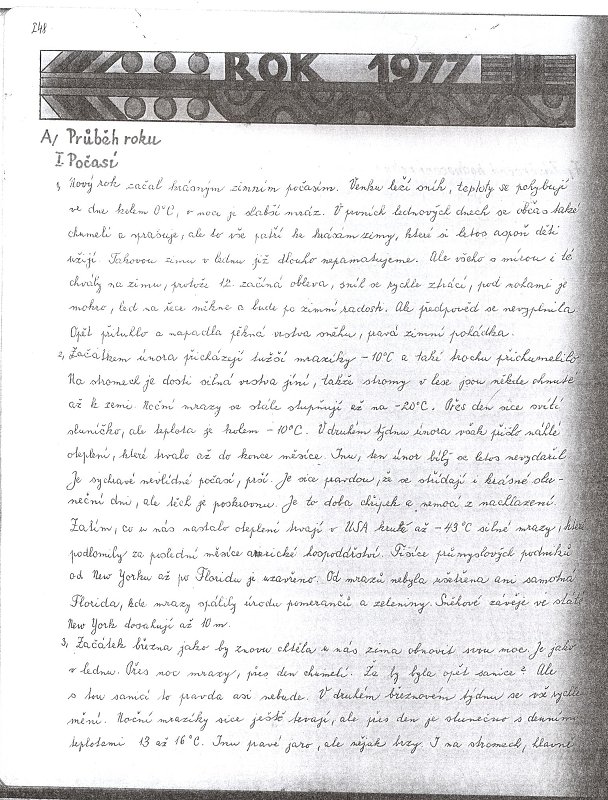 248
ROK 1977
A/ Průběh roku
I. Počasí
1, Nový rok začal krásným zimním počasím. Venku leží sníh, teploty se pohybují
ve dne kolem 0°C, v noci je slabší mráz. V prvních lednových dnech se občas také
chumelí a sprašuje, ale to vše patří ke krásám zimy, které si letos aspoň děti
užijí. Takovou zimu v lednu již dlouho nepamatujeme. Ale všeho s mírou i té
chvály na zimu, protože 12. začíná obleva, sníh se rychle ztrácí, pod nohami je
mokro, led na řece měkne a bude po zimní radosti. Ale předpověď se nevyplnila.
Opět přituhlo a napadla pěkná vrstva sněhu, pravá zimní pohádka.
2, Začátkem února přicházejí tužší mrazíky -10°C a také trochu přichumelilo.
Na stromech je dosti silná vrstva jíní, takže stromy v lese jsou někde ohnuté
až k zemi. Noční mrazy se stále stupňují až na -20°C. Přes den sice svítí
sluníčko, ale teplota je kolem -10°C. V druhém týdnu února však přišlo náhlé
oteplení, které trvalo až do konce měsíce. Inu, ten únor bílý se letos nevydařil.
Je sychravé nevlídné počasí, prší. Je sice pravdou, že se střídají i krásné slu-
neční dni, ale těch je poskrovnu. Je to doba chřipek a nemocí z nachlazení.
Zatím, co u nás nastalo oteplení trvají v USA kruté až -43°C silné mrazy, které
podlomily za poslední měsíce americké hospodářství. Tisíce průmyslových podniků
od New Yorku až po Floridu je uzavřeno. Od mrazů nebyla ušetřena ani samotná
Florida, kde mrazy spálily úrodu pomerančů a zeleniny. Sněhové závěje ve státě
New York dosahují až 10 m.
3, Začátek března jako by znovu chtěla u nás zima obnovit svou moc. Je jako
v lednu. Přes noc mrazy, přes den chumelí. Že by byla opět sanice? Ale
s tou sanicí to pravda asi nebude. V druhém březnovém týdnu se vše rychle
mění. Noční mrazíky sice ještě trvají, ale přes den je slunečno s denními
teplotami 13 až 16°C. Inu pravé jaro, ale nějak brzy. I na stromech, hlavně